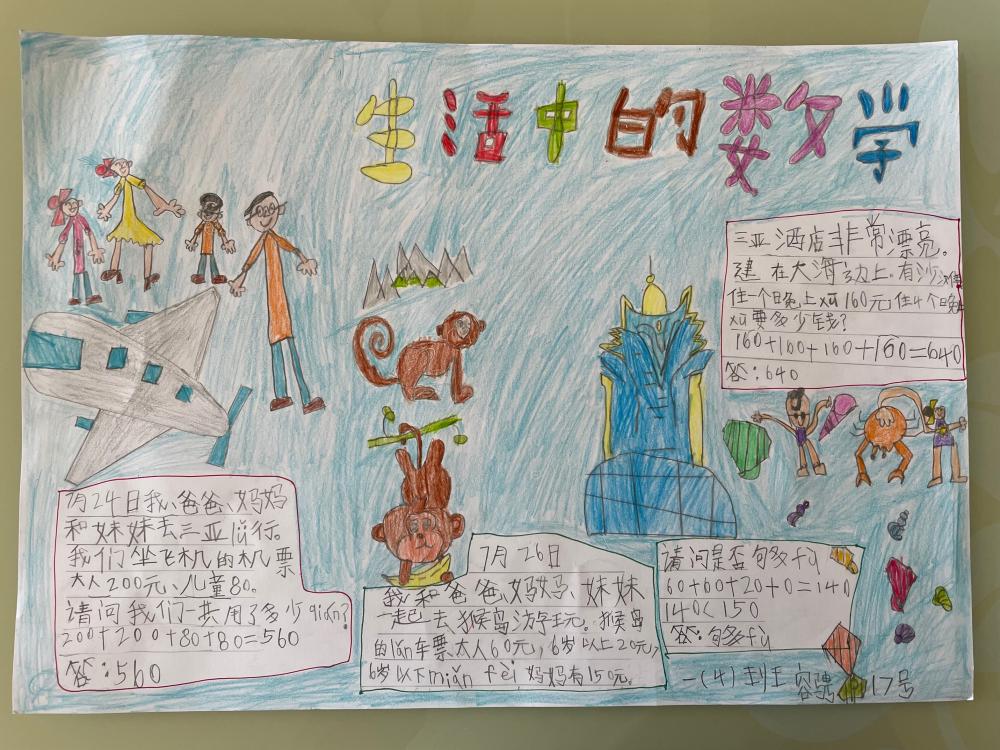 生活中的数学
三亚酒店非常漂亮。
建在大海边上.有沙滩
住一个日免上xū160元,住4个日免
xū要多少钱?
160+160+160+160=640
答:640
7月24日我、爸爸、妈妈
和妹妹去三亚lǚ行。
我们坐飞机的机票
大人200元、儿童80。
请问我们一共用了多少qián?
200+200+80+80=560
答:560
7月26日
我和爸爸、妈妈、妹妹
一起去猴岛游玩。猴岛
的lǎn车票大人60元,6岁以上20元,
6岁以下miǎn fèi妈妈有150元。
请问是否句多fù
60+60+20+0=140
140<150
答:句多fù
一(4)班 17号